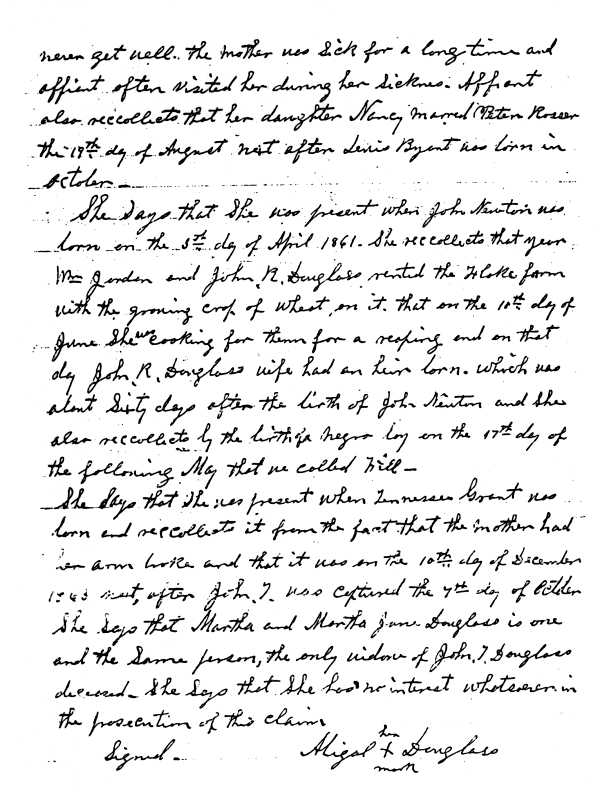 never get well. the mother was Sick for a long time and
affiant often visited her during her Sicknes. Affiant
also reccollects that her daughter Nancy marred Peter Rosser
the 19th day of August next after Lewis Byant was born in
October.
She Says that She was present when John Newton was
born on the 5th day of April 1861. She reccollects that year
Wm Jordan and John R. Douglass rented the Floke farm
with the growing crop of wheat on it. that on the 10th day of
June She was cooking for them for a reaping and on that
day John R. Douglass wife had an heir born. which was
about Sixty days after the birth of John Newton and She
also reccollects by the birth of a negro boy on the 17th day of
the following May that we called Will -
She Says that She was present when Tennessee Grant was
born and reccollects it from the fact that the mother had
her arm broke and that it was on the 10th day of December
1863 next, after John T. was captured the 7th day of October
She Says that Martha and Martha Jane Douglass is one
and the Same person, the only widow of John T. Douglass
deceased - She Says that She has no interest whatsoever in
the prosecution of this claim
her
Signed - Abigal X Douglass
mark